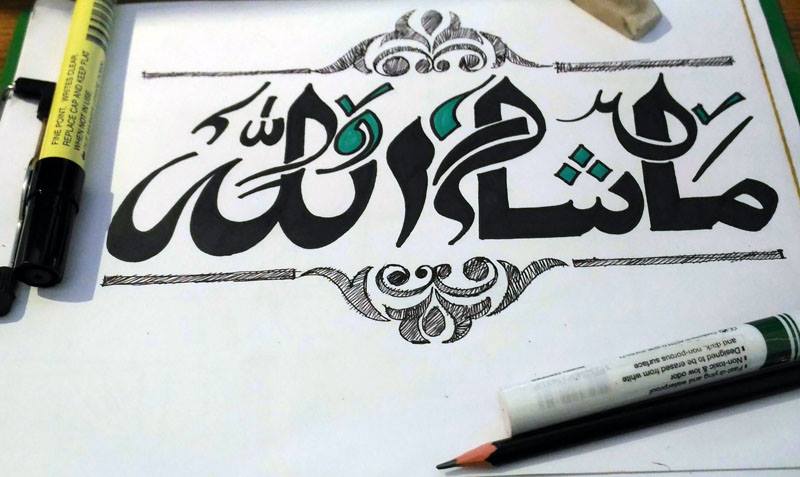 مَا شَاءَ اللّٰهُ
FINE POINT. WRITES CLEAR.
REPLACE CAP AND KEEP FLAT
WHEN NOT IN USE
Fast-drying and waterproof
Non-toxic & low odor
Designed to be erased from white
and dark, non-porous surface